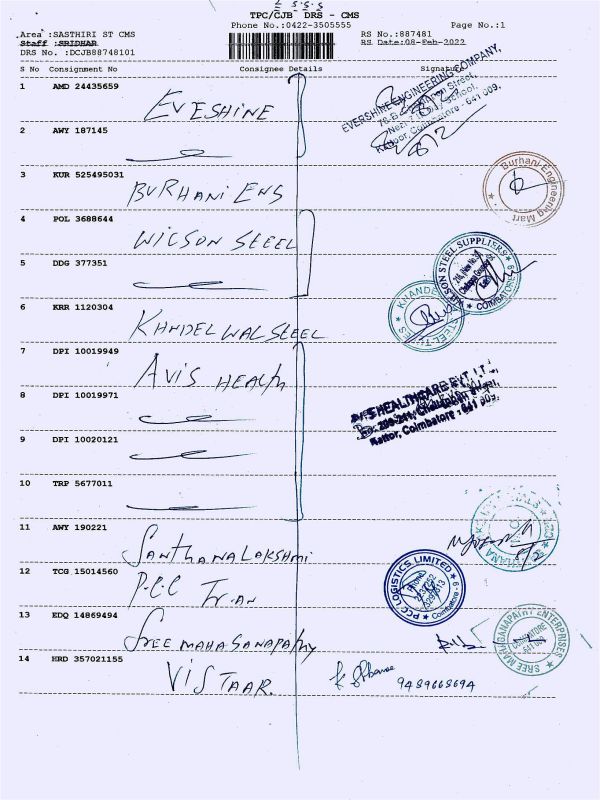 TPC/CJB DRS - CMS
Phone No.:0422-3505555 Page No.:1
Area :SASTHIRI ST CMS RS No.:887481
Staff :SRIDHAR RS Date:08-Feb-2022
DRS No. :DCJB88748101
S No Consignment No Consignee Details Signature
1 AMD 24435659
EVESHINE
EVERSHINE ENGINEERING COMPANY,
Coimbatore - 641 009.
2 AWY 187145
3 KUR 525495031
BURHANI ENS
Burhani Engineering Mart
4 POL 3688644
WILSON STEEL
WILSON STEEL SUPPLIERS
COIMBATORE
5 DDG 377351
6 KRR 1120304
KHNDELWAL STEEL
7 DPI 10019949
AVIS HEALTH
8 DPI 10019971
HEALTHCARE PVT. LT
Kattor, Coimbatore - 641 009.
9 DPI 10020121
10 TRP 5677011
11 AWY 190221
SANTHANALAKSHMI
12 TCG 15014560
P.C.C Tr.an
PCC LOGISTICS LIMITED
Coimbatore-9
13 EDQ 14869494
SREE MAHAGANAPATHY
SREE MAHAGANAPATHY ENTERPRISES
COIMBATORE
641 009
14 HRD 357021155
VISTAAR.
9489668694